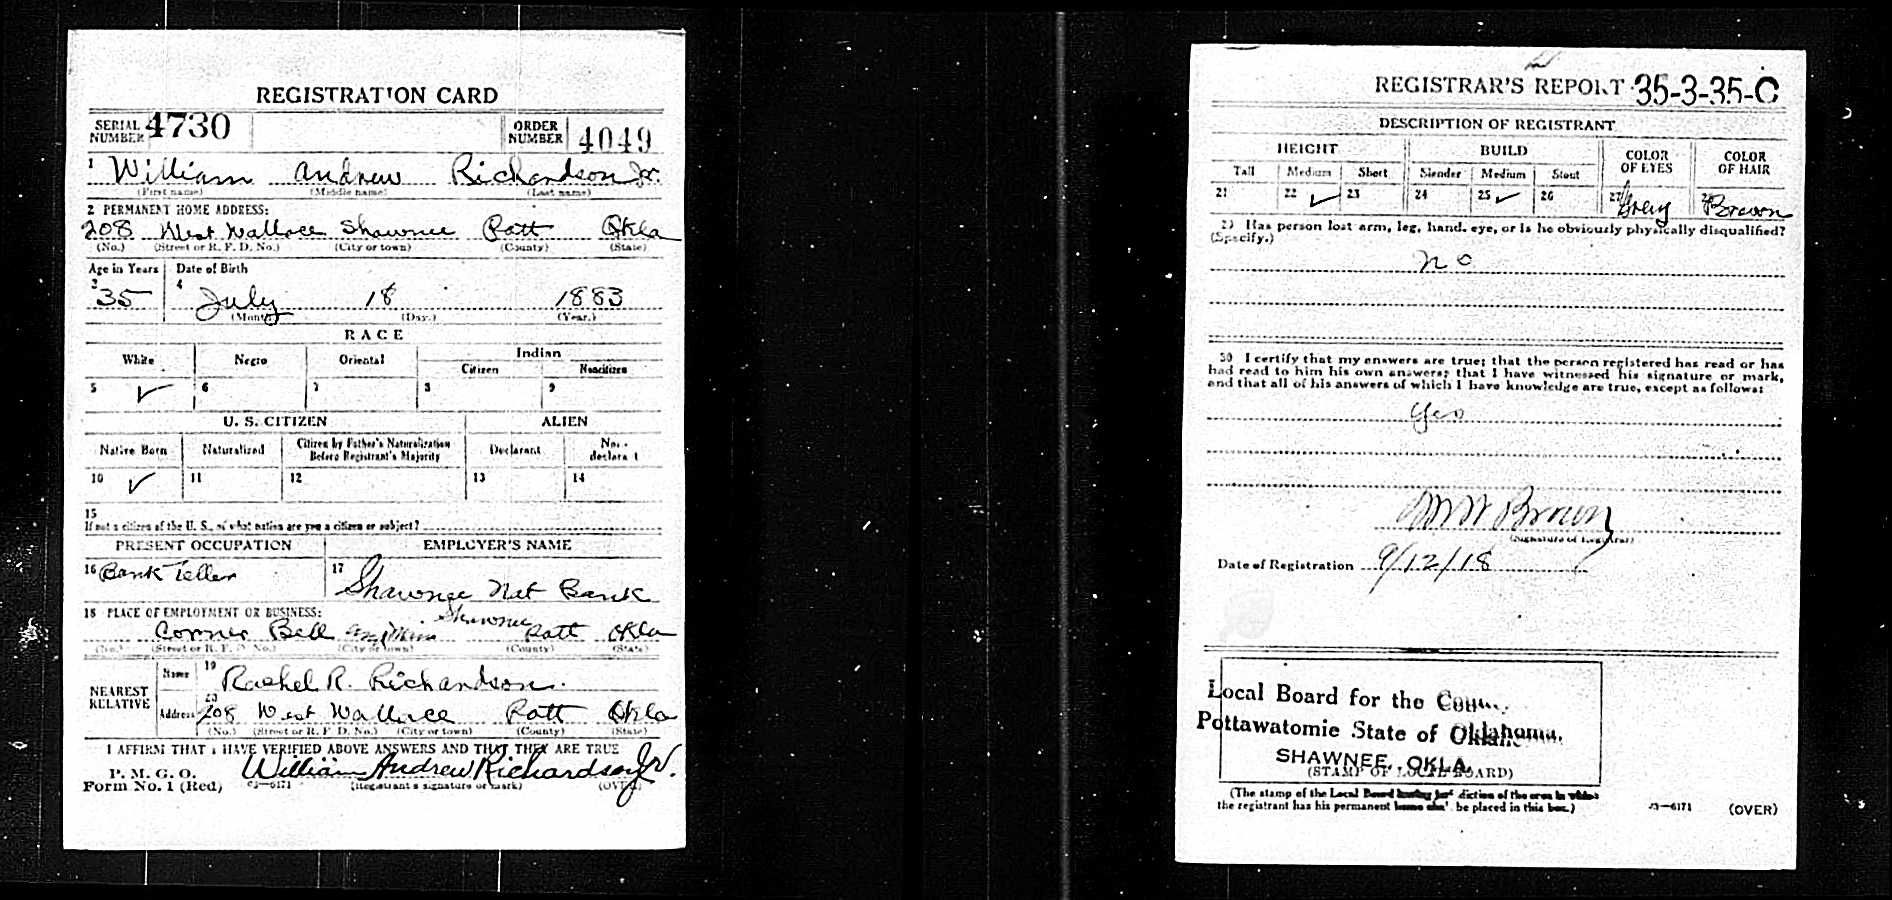 REGISTRATION CARD
SERIAL NUMBER 4730 ORDER NUMBER 4049
1 William Andrew Richardson Jr.
(First name) (Middle name) (Last name)
2 PERMANENT HOME ADDRESS:
208 West Wallace Shawnee Pott Okla
(No.) (Street or R. F. D. No.) (City or town) (County) (State)
Age in Years Date of Birth
3 35 4 July 18 1883
(Month) (Day.) (Year.)
RACE
White Negro Oriental Indian
Citizen Noncitizen
5 ✓ 6 7 8 9
U. S. CITIZEN ALIEN
Native Born Naturalized Citizen by Father's Naturalization Before Registrant's Majority Declarant
10 ✓ 11 12 13 14
15
If not a citizen of the U. S., of what nation are you a citizen or subject?
PRESENT OCCUPATION EMPLOYER'S NAME
16 Bank Teller 17 Shawnee Nat Bank
18 PLACE OF EMPLOYMENT OR BUSINESS:
Corner Bell Shawnee Pott Okla
(No.) (Street or R. F. D. No.) (City or town) (County) (State)
NEAREST RELATIVE
Name 19 Rachel R. Richardson.
Address 20 208 West Wallace Pott Okla
(No.) (Street or R. F. D. No.) (City or town) (County) (State)
I AFFIRM THAT I HAVE VERIFIED ABOVE ANSWERS AND THAT THEY ARE TRUE
P. M. G. O.
Form No. 1 (Red) William Andrew Richardson Jr.
(Registrant's signature or mark) (OVER)
REGISTRAR'S REPORT 35-3-35-C
DESCRIPTION OF REGISTRANT
HEIGHT BUILD COLOR OF EYES COLOR OF HAIR
Tall Medium Short Slender Medium Stout
21 22 ✓ 23 24 25 ✓ 26 27 Grey Brown
29 Has person lost arm, leg, hand, eye, or is he obviously physically disqualified?
(Specify.)
no
30 I certify that my answers are true; that the person registered has read or has
had read to him his own answers; that I have witnessed his signature or mark,
and that all of his answers of which I have knowledge are true, except as follows:
yes
Brown
(Signature of Registrar)
Date of Registration 9/12/18
Local Board for the
Pottawatomie State of Oklahoma.
SHAWNEE, OKLA.
(STAMP OF LOCAL BOARD)
(The stamp of the Local Board
the registrant has his permanent be placed in this box.)
(OVER)